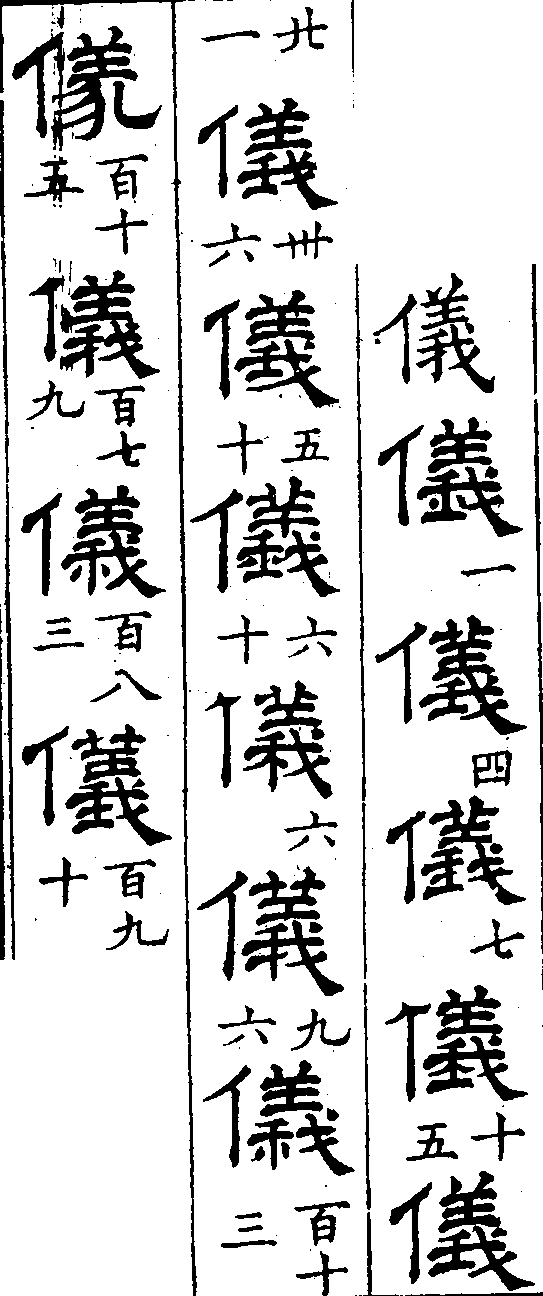 儀儀一儀四儀七儀十五儀
廿一儀卅六儀五十儀六十儀六儀九六儀百十三
儀百十五儀百七九儀百八三儀百九十